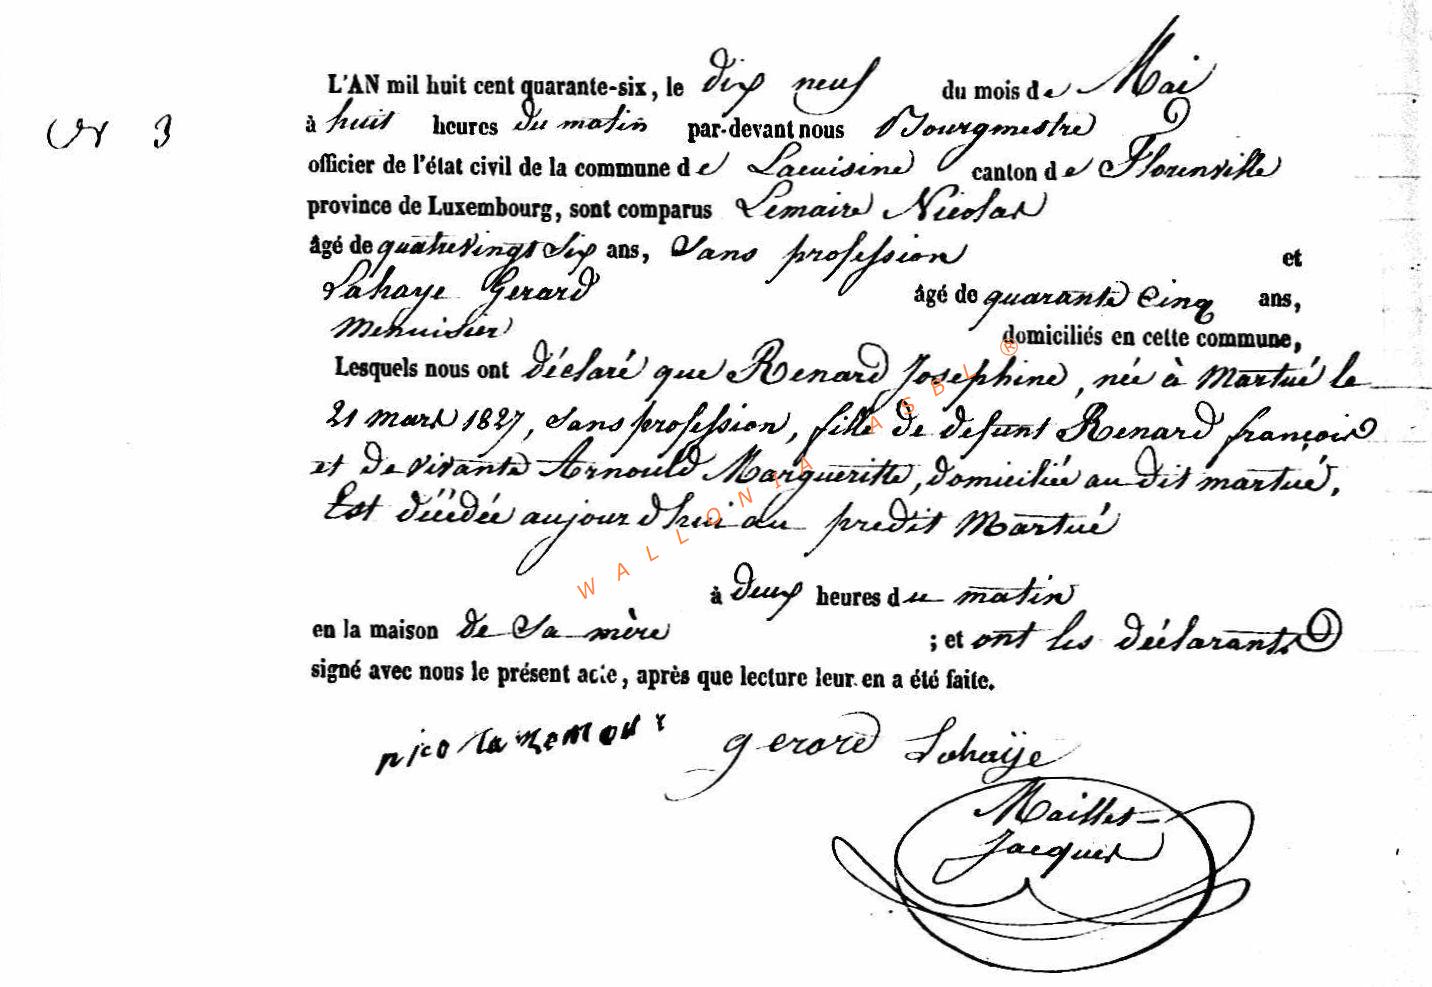 L'AN mil huit cent quarante-six, le dix neuf du mois de Mai
N° 3
à huit heures du matin par-devant nous Bourgmestre
officier de l'état civil de la commune de Lacuisine canton de Florenville
province de Luxembourg, sont comparus Lemaire Nicolas
âgé de quatrevingt six ans, Sans profession et
Lahaye Gerard âgé de quarante Cinq ans,
Menuisier domiciliés en cette commune,
Lesquels nous ont déclaré que Renard Josephine, née à Martué le
21 mars 1827, Sans profession, fille de defunt Renard françois
et de vivante Arnould Margueritte, domiciliée au dit martué,
Est décédée aujourd'hui au predit Martué
à deux heures du matin
en la maison de Sa mère ; et ont les déclarants
signé avec nous le présent acte, après que lecture leur en a été faite.
gerard Lahaÿe
Maillet
Jacques
WALLONIA ASBL ®